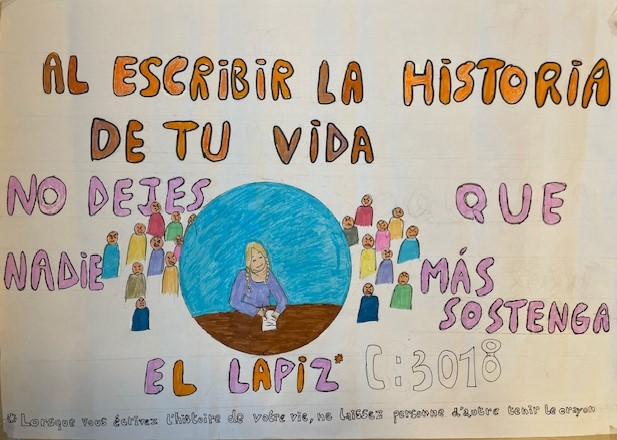 AL ESCRIBIR LA HISTORIA
DE TU VIDA
NO DEJES QUE
NADIE MÁS
SOSTENGA
EL LAPIZ* C:3018
*Lorsque vous écrivez l'histoire de votre vie, ne laissez personne d'autre tenir le crayon